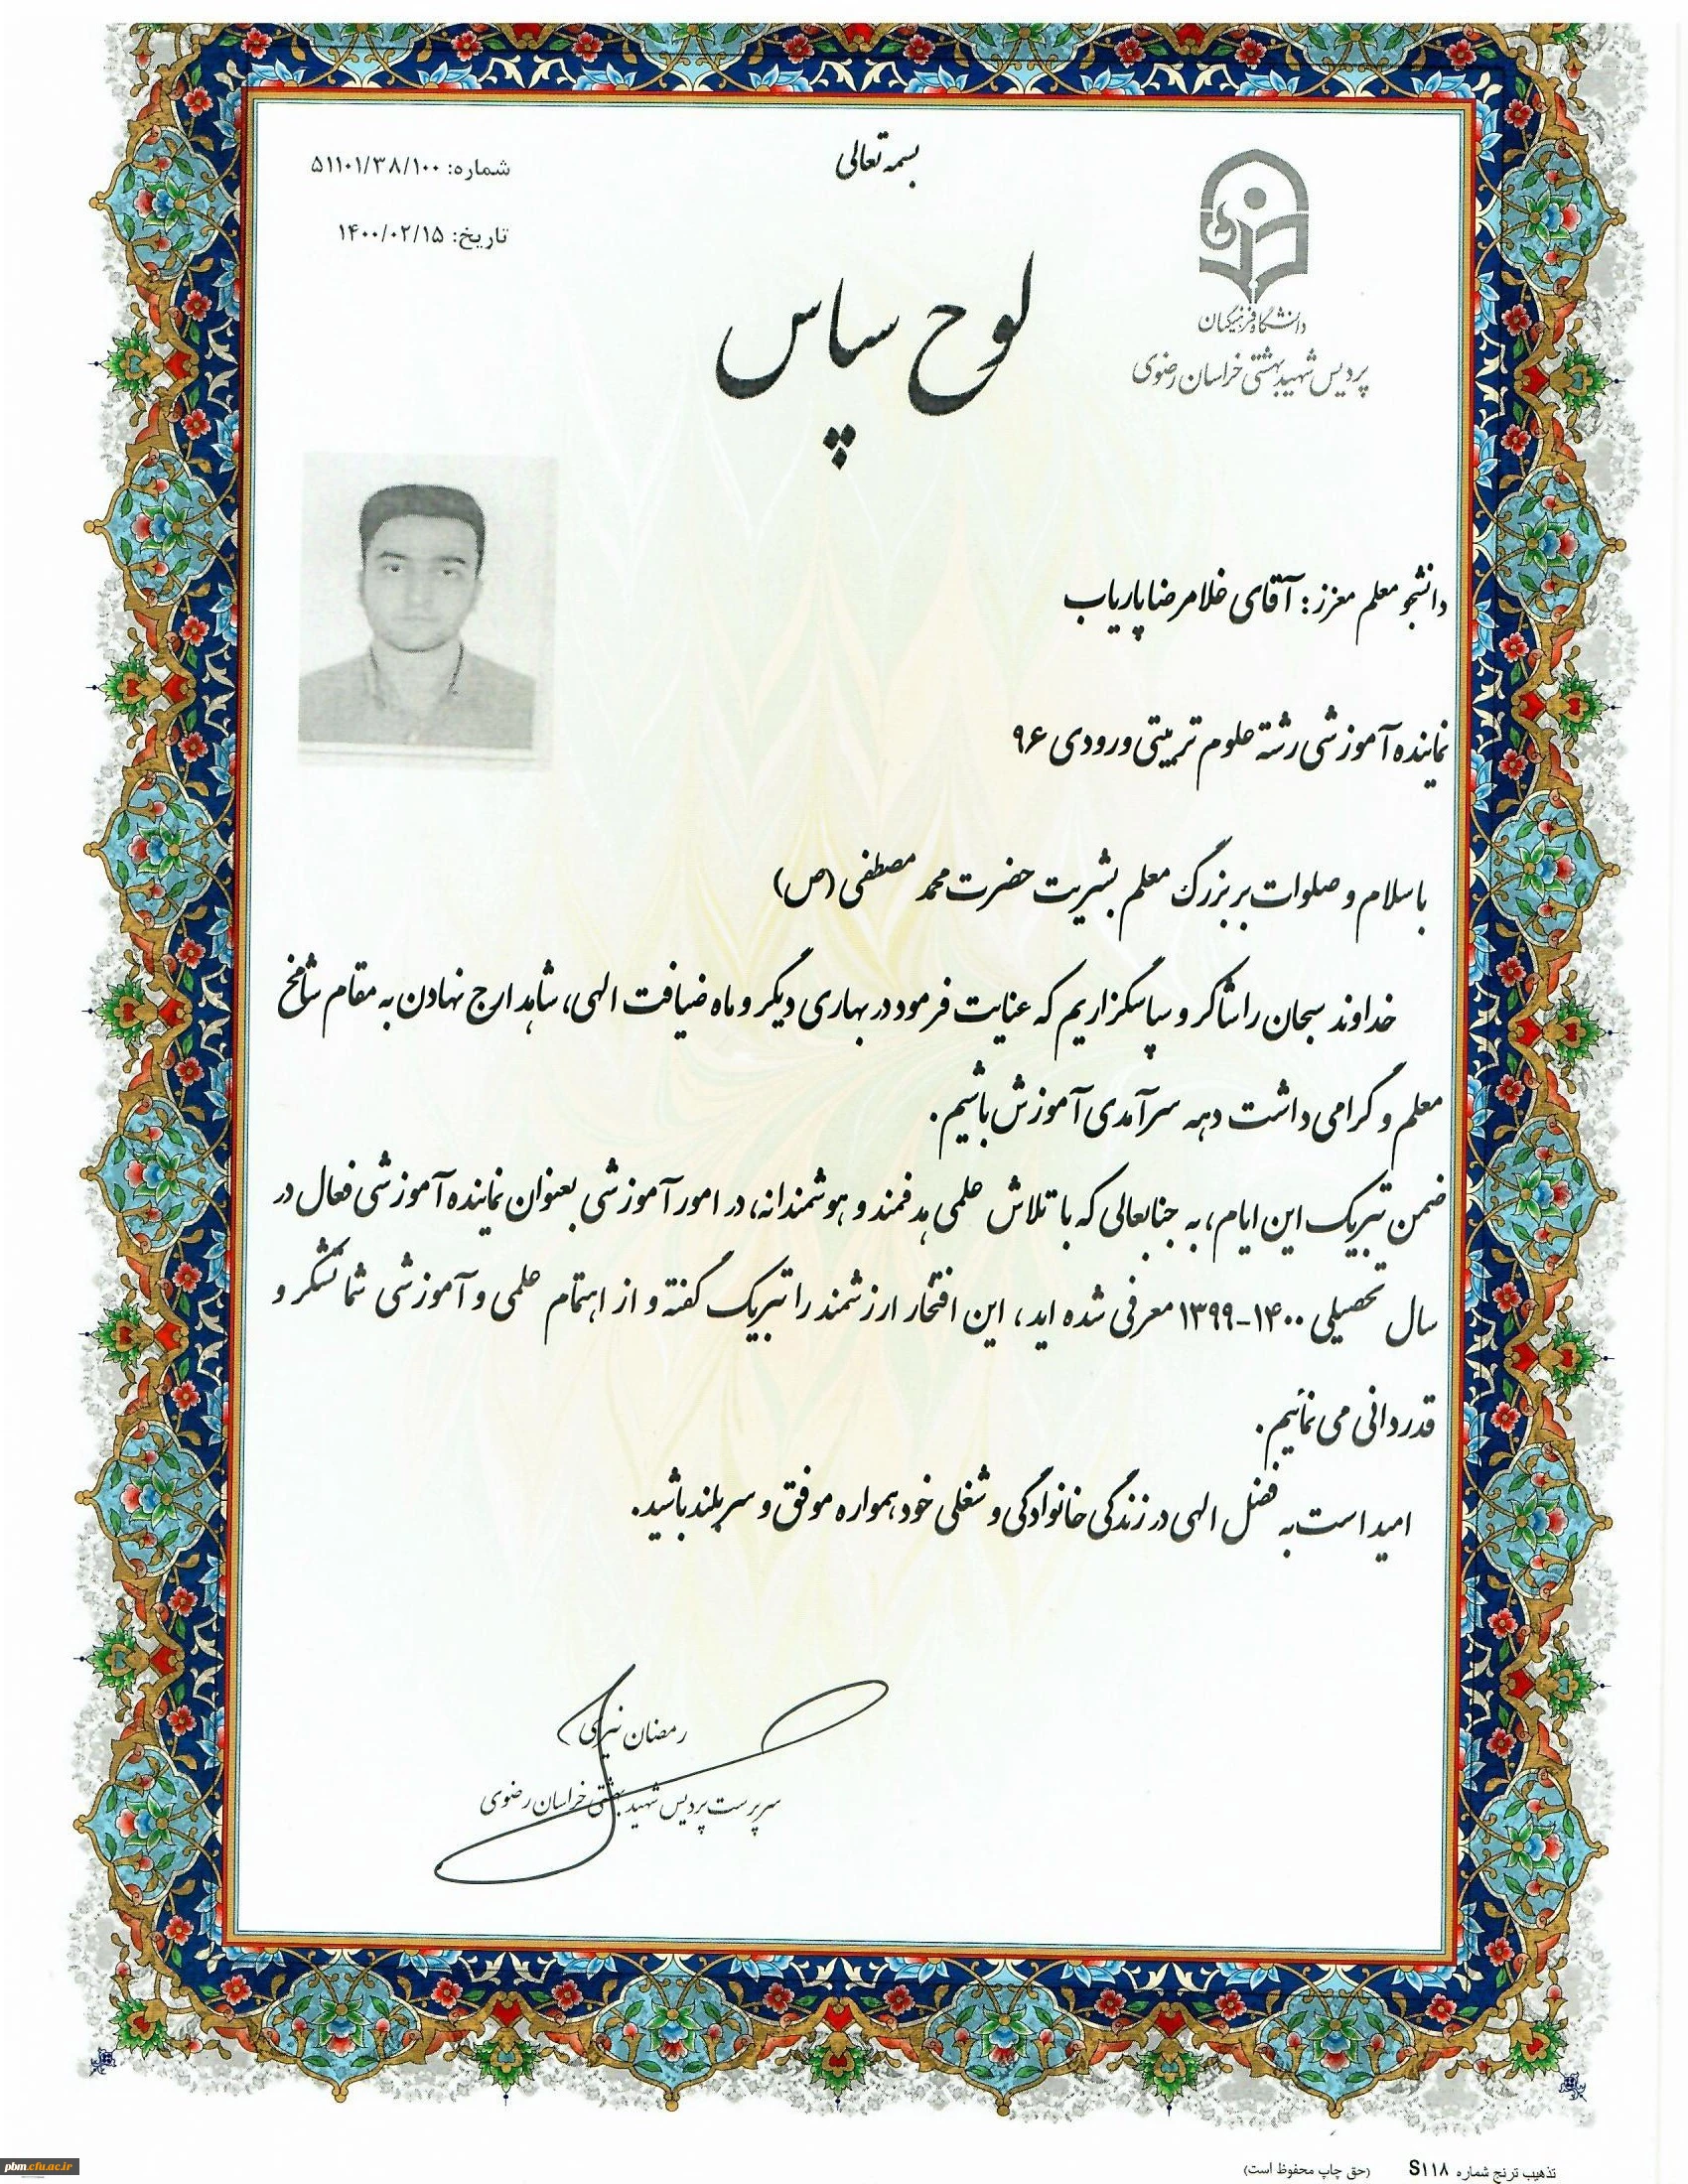 بسمه تعالی
شماره: ۵۱۱۰۱/۳۸/۱۰۰
تاریخ: ۱۴۰۰/۰۲/۱۵
دانشگاه فرهنگیان
پردیس شهید بهشتی خراسان رضوی
لوح سپاس
دانشجو معلم معزز: آقای غلامرضا پاریاب
نماینده آموزشی رشته علوم تربیتی ورودی ۹۶
با سلام و صلوات بر بزرگ معلم بشریت حضرت محمد مصطفی (ص)
خداوند سبحان را شاکر و سپاسگزاریم که عنایت فرمود در بهاری دیگر و ماه ضیافت الهی، شاهد ارج نهادن به مقام شامخ
معلم و گرامی داشت دهه سرآمدی آموزش باشیم.
ضمن تبریک این ایام، به جنابعالی که با تلاش علمی هدفمند و هوشمندانه، در امور آموزشی بعنوان نماینده آموزشی فعال در
سال تحصیلی ۱۴۰۰-۱۳۹۹ معرفی شده اید، این افتخار ارزشمند را تبریک گفته و از اهتمام علمی و آموزشی شما تشکر و
قدردانی می نمائیم.
امید است به فضل الهی در زندگی خانوادگی و شغلی خود همواره موفق و سربلند باشید.
رمضان
سرپرست پردیس شهید بهشتی خراسان رضوی
تذهیب ترنج شماره S۱۱۸ (حق چاپ محفوظ است)
pbm.cfu.ac.ir